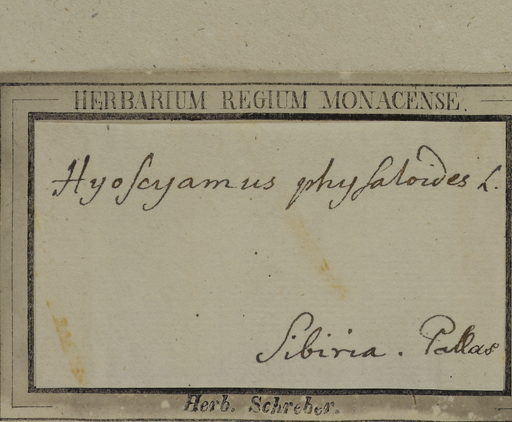 HERBARIUM REGIUM MONACENSE.
Hyoſcyamus phyſaloides L.
Sibiria. Pallas
Herb. Schreber.